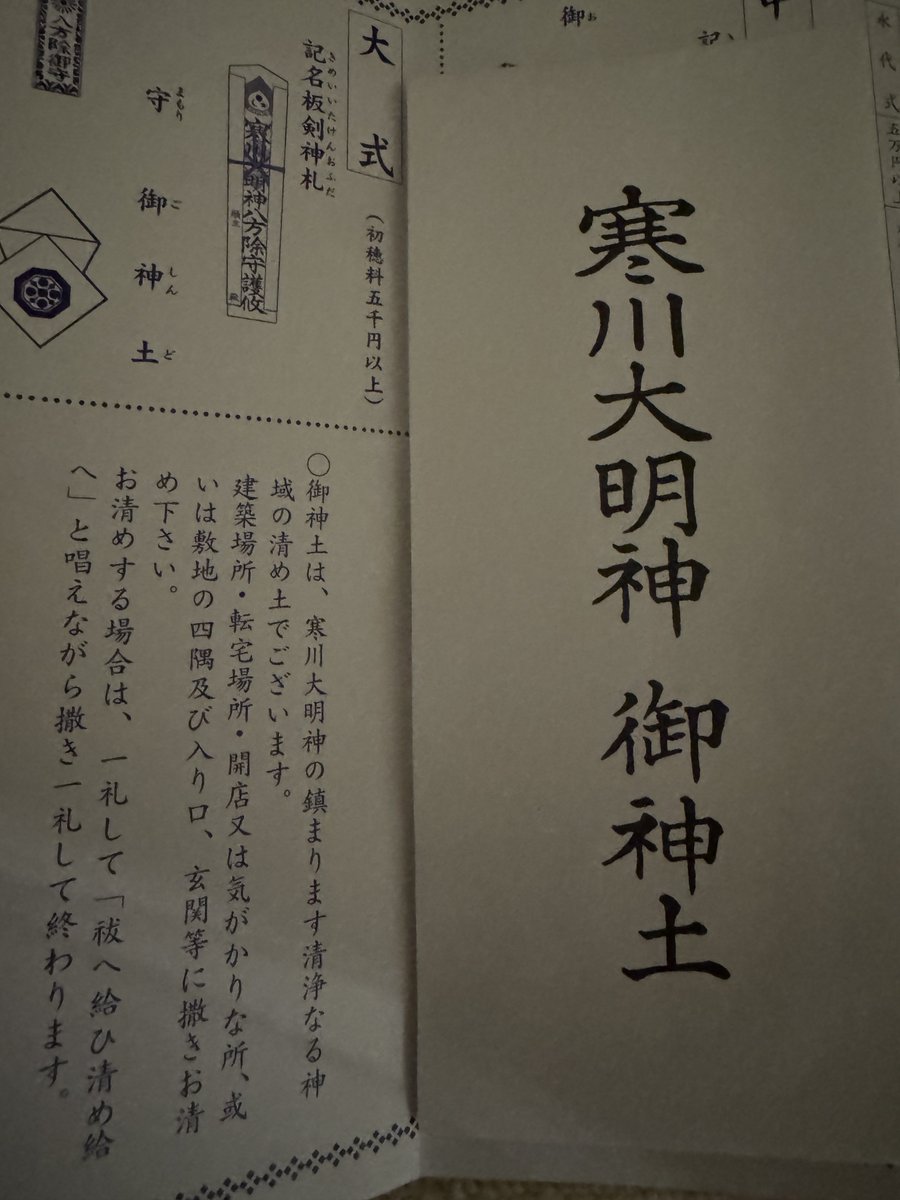 寒川大明神 御神土
永代式
五万円以上
御
お
記
大式
(初穂料五千円以上)
記名板剣神札
きめいいたけんおふだ
寒川大明神八方除守護攸
願主
守御神土
まもりごしんど
八方除御守
〇御神土は、寒川大明神の鎮まります清浄なる神
域の清め土でございます。
建築場所・転宅場所・開店又は気がかりな所、或
いは敷地の四隅及び入り口、玄関等に撒きお清
め下さい。
お清めする場合は、一礼して「祓へ給ひ清め給
へ」と唱えながら撒き一礼して終わります。